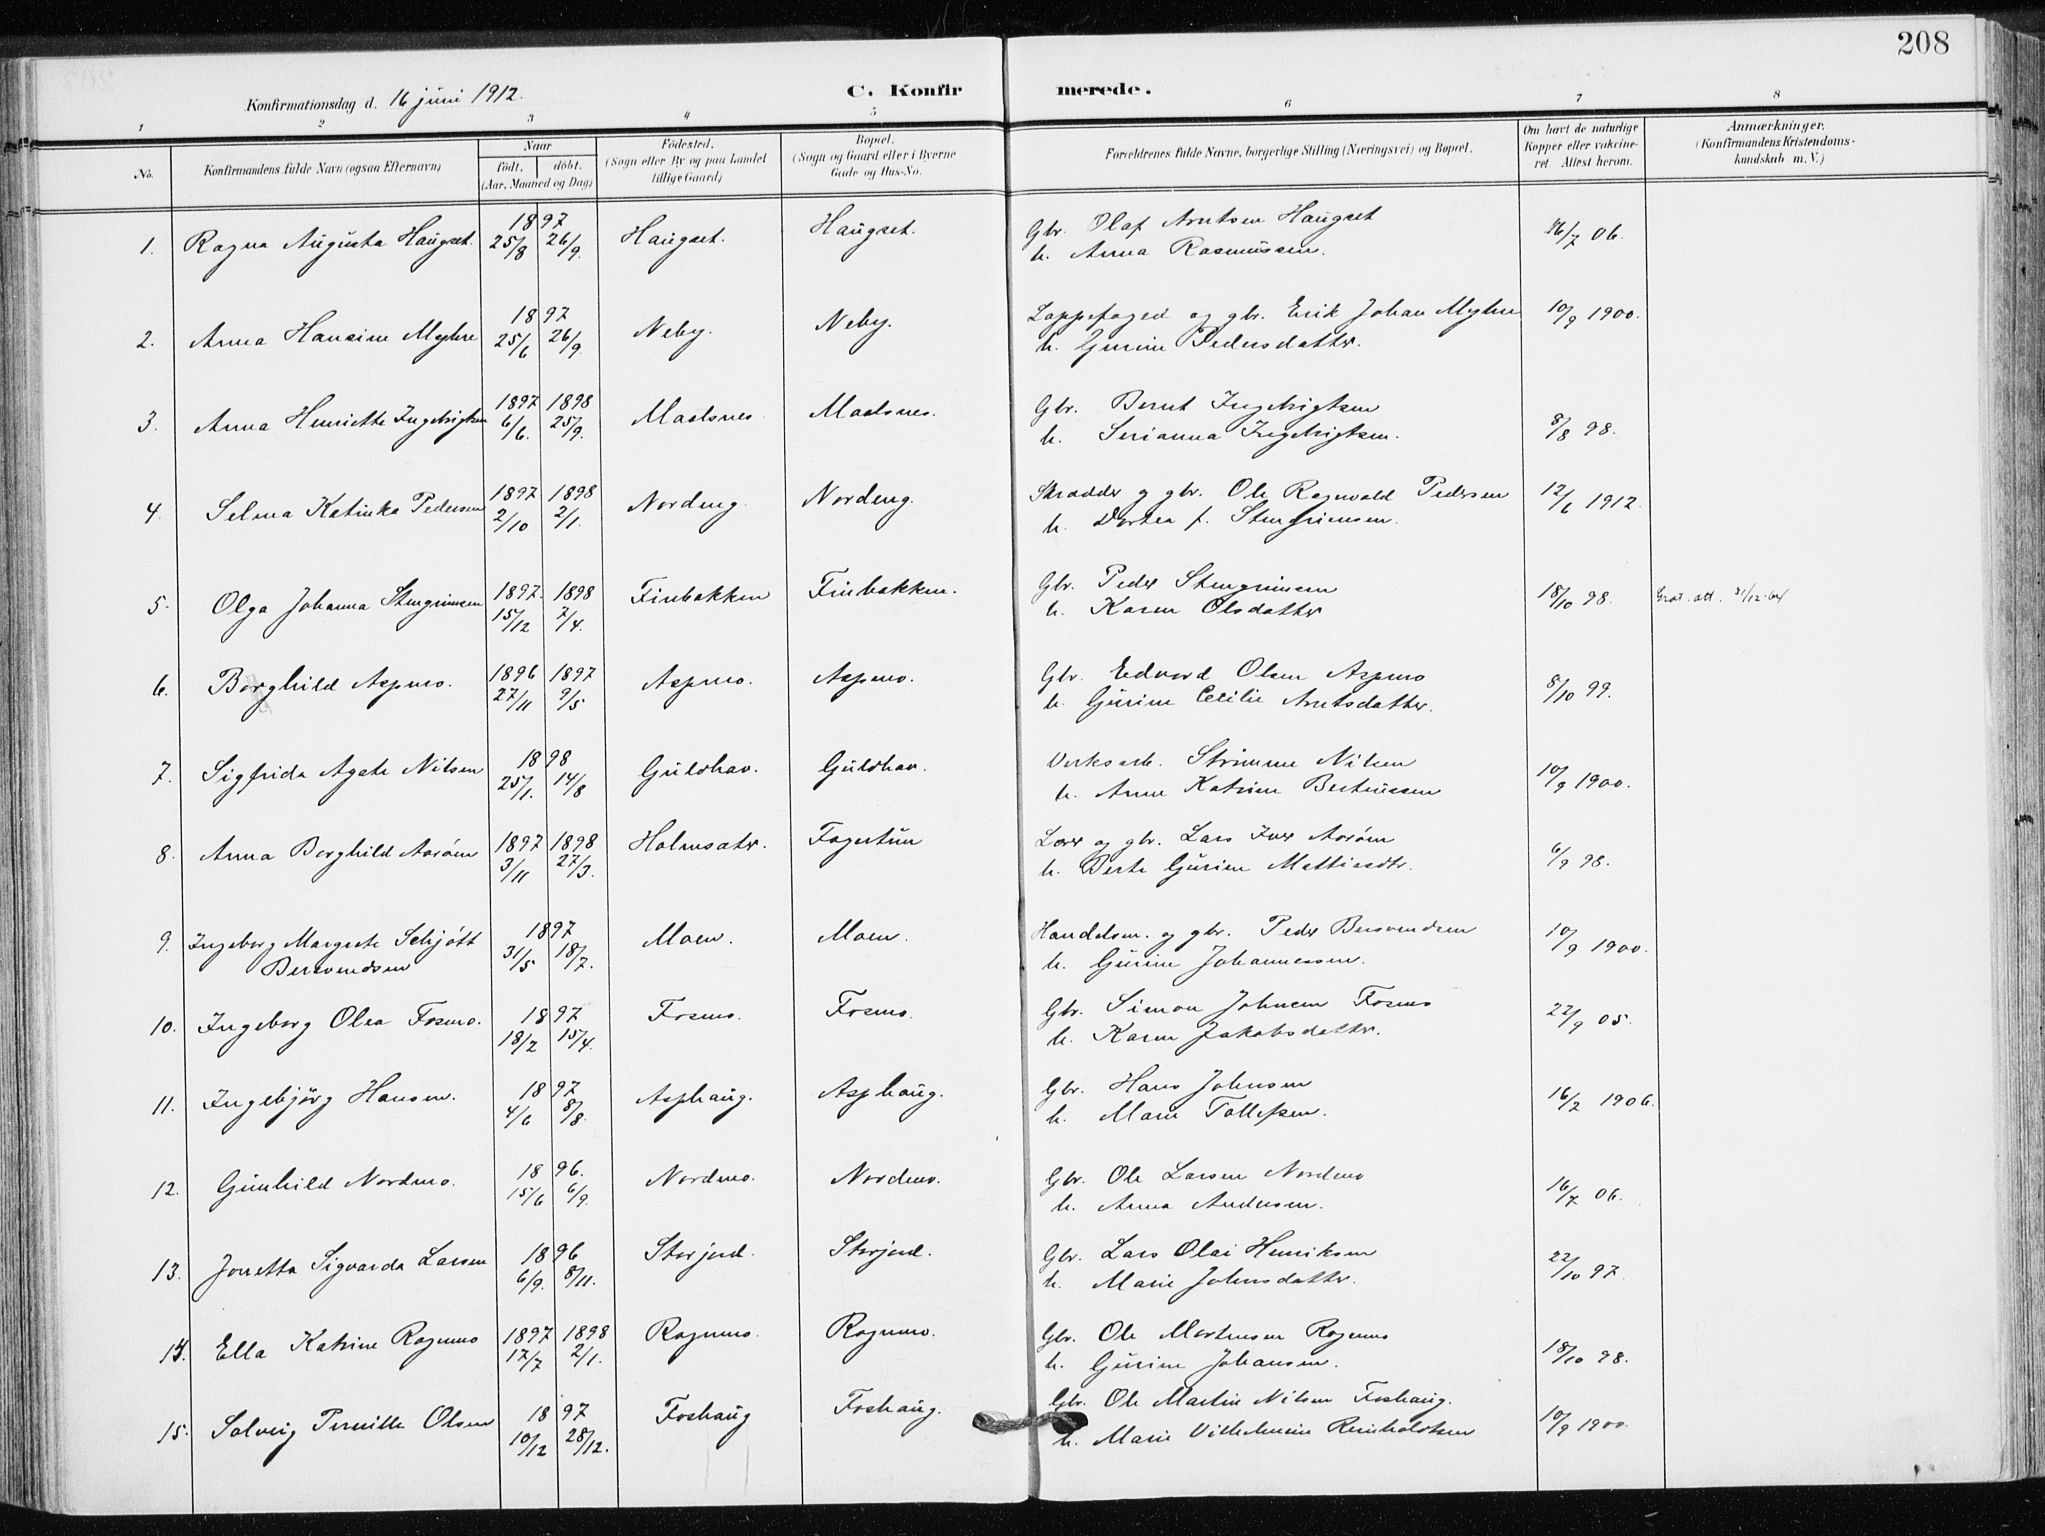 208
Konfirmationsdag d. 16 juni 1912.
C. Konfirmerede.
1 2 3 4 5 6 7 8
No.
Konfirmandens fulde Navn (ogsaa Efternavn)
Naar
født. døbt.
(Aar, Maaned og Dag)
Fødested.
(Sogn eller By og paa Landet
tillige Gaard)
Bopæl.
(Sogn og Gaard eller i Byerne
Gade og Hus-No.
Forældrenes fulde Navne, borgerlige Stilling (Næringsvei) og Bopæl.
Om havt de naturlige
Kopper eller vakcine-
ret. Attest herom.
Anmærkninger.
(Konfirmandens Kristendoms-
kundskab m. V.)
1. Ragna Augusta Haugset. 1897 25/8 26/9. Haugset. Haugset. Gbr. Olaf Arntsen Haugset 16/7 06.
h. Anna Rasmussen.
2. Anna Hansine Myhre 1897 25/6 26/9. Neby. Neby. Lappefoged og gbr. Erik Johan Myhre 10/9 1900.
h. Gurine Pedersdatter.
3. Anna Henriette Ingebrigtsen 1897 6/6. 1898 25/9. Maalsnes Maalsnes. Gbr. Bernt Ingebrigtsen 8/8 98.
h. Serianna Ingebrigtsen.
4. Selma Katinka Pedersen 1897 2/10 1898 2/1. Nordeng. Nordeng. Skrædder og gbr. Ole Ragnvald Pedersen 12/6 1912.
h. Dortea f. Stengrimsen.
5. Olga Johanna Stengrimsen 1897. 15/12 1898 7/4. Finbakken Finbakken. Gbr. Peder Stengrimsen 18/10 98. att. 31/12-64
h. Karen Olsdatter
6. Borghild Aspmo. 1896 27/11 1897 9/5 Aspmo. Aspmo. Gbr. Edvard Olsen Aspmo 8/10 99.
h. Gurine Cecilie Arntsdatter.
7. Sigfrida Agate Nilsen 1898 25/1. 14/8 Guldhav. Guldhav. Verksarb. Nilsen 10/9 1900.
h. Anne Katrine Berteussen
8. Anna Borghild Aarøen 1897 3/11 1898 27/3. Holmsæter. Fagertun Lærer og gbr. Lars Iver Aarøen 6/9 98.
h. Berte Gurine Mattiasdtr.
9. Ingeborg Margrete Schjøtt 1897 31/5 18/7. Moen. Moen. Handelsm. og gbr. Peder Bersvendsen 10/9 1900.
Bersvendsen h. Gurine Johannessen.
10. Ingeborg Olea Fosmo. 1897 18/2 15/4. Fosmo. Fosmo. Gbr. Simon Johnsen Fosmo 22/9 05.
h. Karen Jakobsdatter.
11. Ingebjørg Hansen. 1897 4/6 8/8. Asphaug. Asphaug. Gbr. Hans Johnsen 16/7 1906.
h. Marie Tollefsen.
12. Gunhild Nordmo. 1896. 15/6 6/9. Nordmo. Nordmo. Gbr. Ole Larsen Nordmo 16/7 06.
h. Anna Andersen.
13. Jonetta Sigvarda Larsen 1896 6/9. 8/11. Storjord. Storjord. Gbr. Lars Olai Henriksen 22/10 97.
h. Marie Johnsdatter.
14. Ella Katrine Rognmo 1897 17/7 1898 2/1. Rognmo. Rognmo. Gbr. Ole Mortensen Rognmo 18/10 98.
h. Gurine Johansen.
15. Solveig Pernille Olsen 1897 10/12 28/12. Foshaug Foshaug. Gbr. Ole Martin Nilsen Foshaug. 10/9 1900.
h. Marie Vilhelmine Reinholdtsen